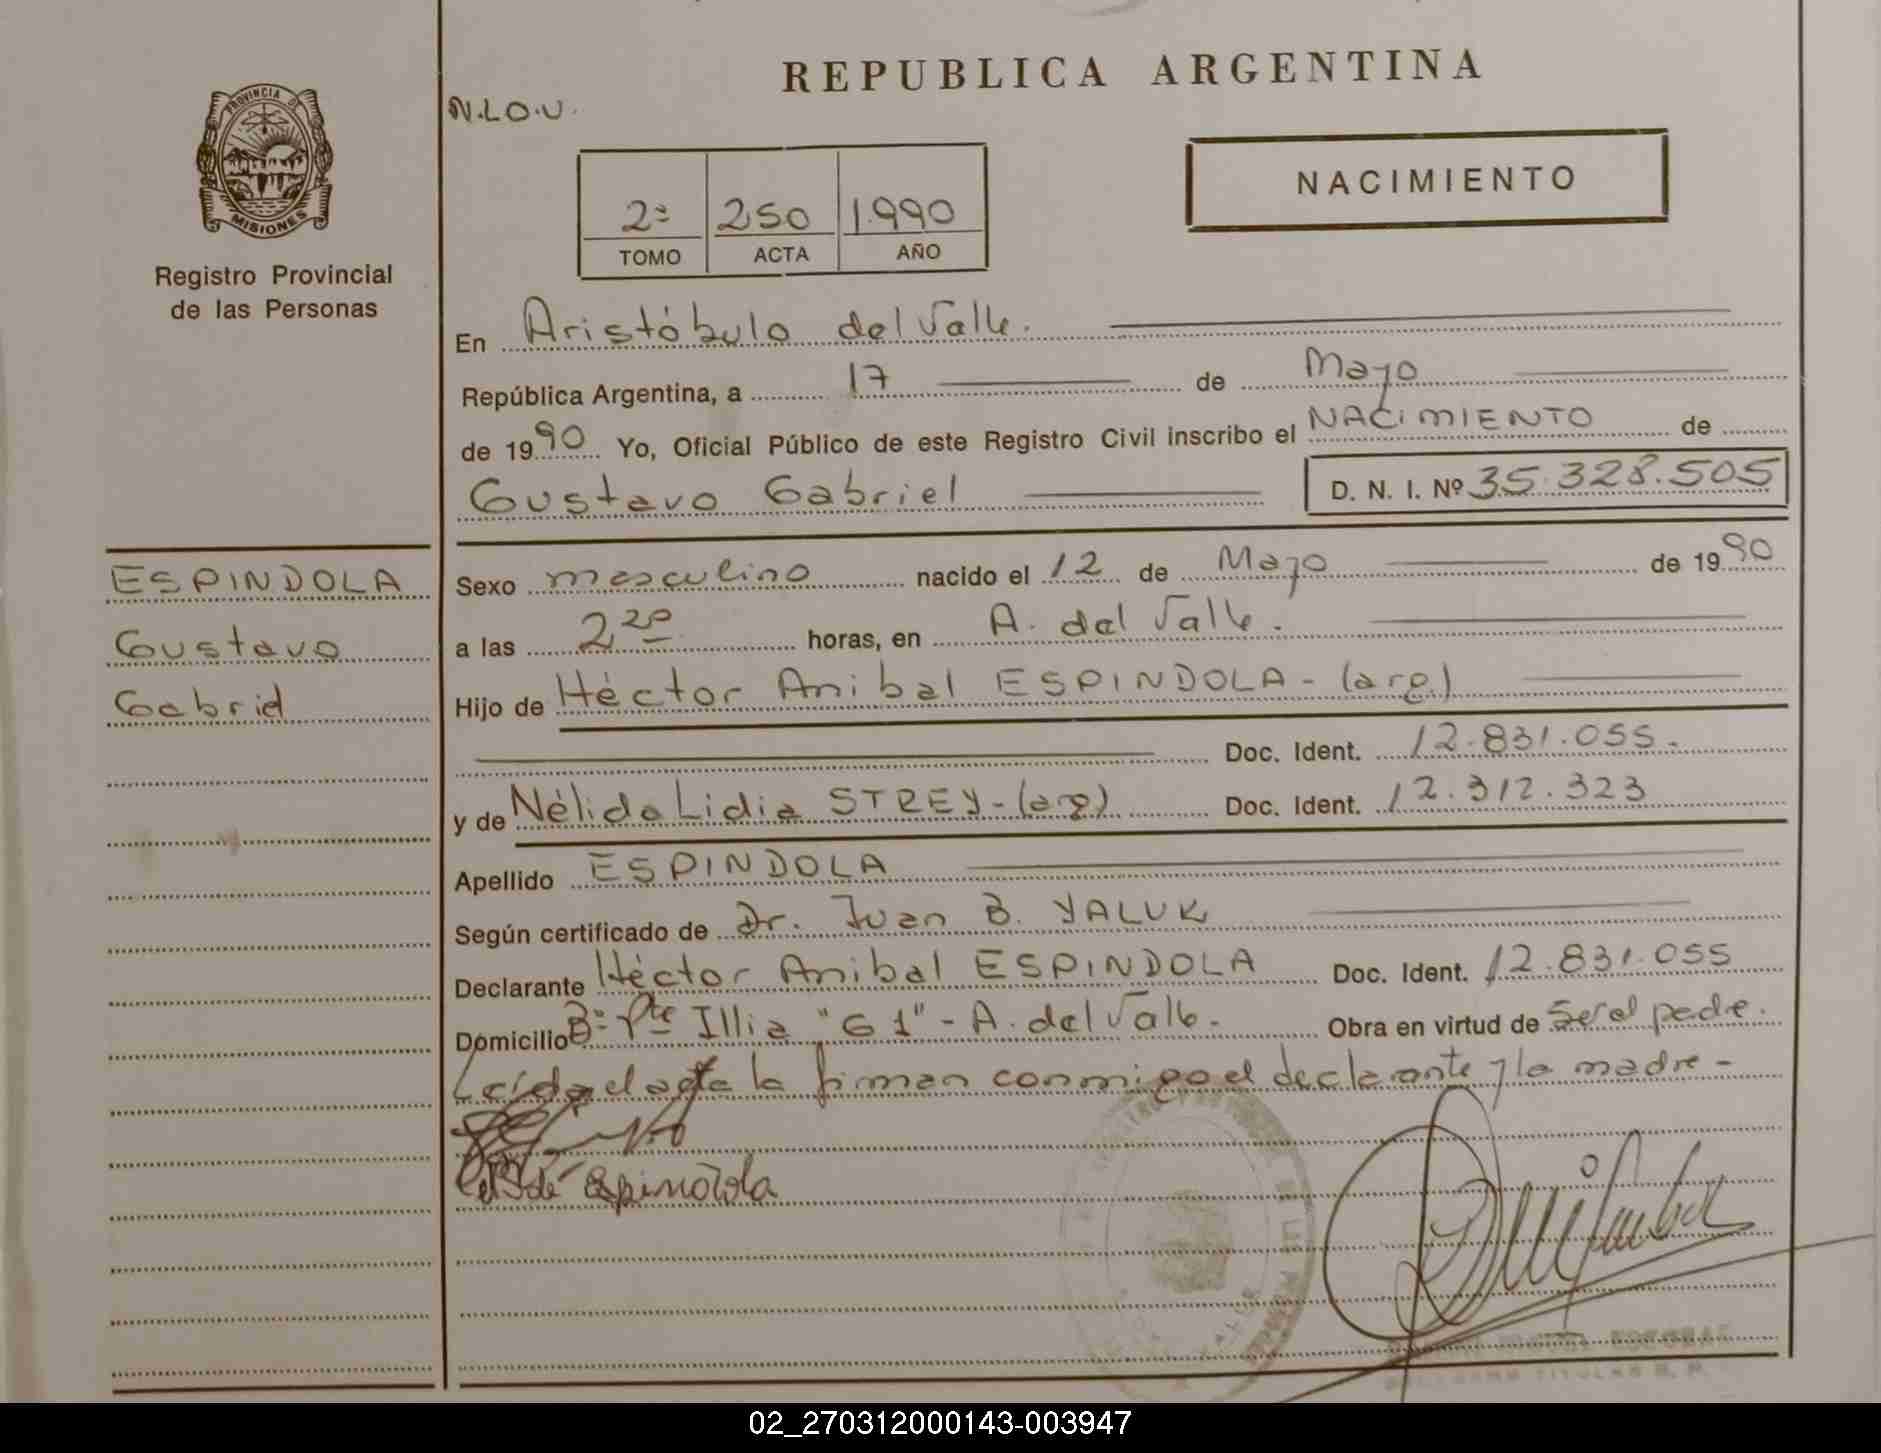 REPUBLICA ARGENTINA
N.L.O.U.
PROVINCIA DE
MISIONES
Registro Provincial
de las Personas
NACIMIENTO
2º 250 1.990
TOMO ACTA AÑO
En Aristóbulo del Valle.
República Argentina, a 17 de Mayo
de 1990 Yo, Oficial Público de este Registro Civil inscribo el NACIMIENTO de
Gustavo Gabriel D. N. I. Nº 35.328.505
ESPINDOLA
Gustavo
Gabriel
Sexo masculino nacido el 12 de Mayo de 1990
a las 2 20 horas, en A. del Valle.
Hijo de Héctor Anibal ESPINDOLA - (arg.)
Doc. Ident. 12.831.055.
y de Nélida Lidia STREY - (arg) Doc. Ident. 12.312.323
Apellido ESPINDOLA
Según certificado de Dr. Juan B. YALUK
Declarante Héctor Anibal ESPINDOLA Doc. Ident. 12.831.055
Domicilio Bº Pte Illia "G1" - A. del Valle. Obra en virtud de Ser el padre.
Leída el acta la firman conmigo el declarante y la madre -
de Espindola
02_270312000143-003947